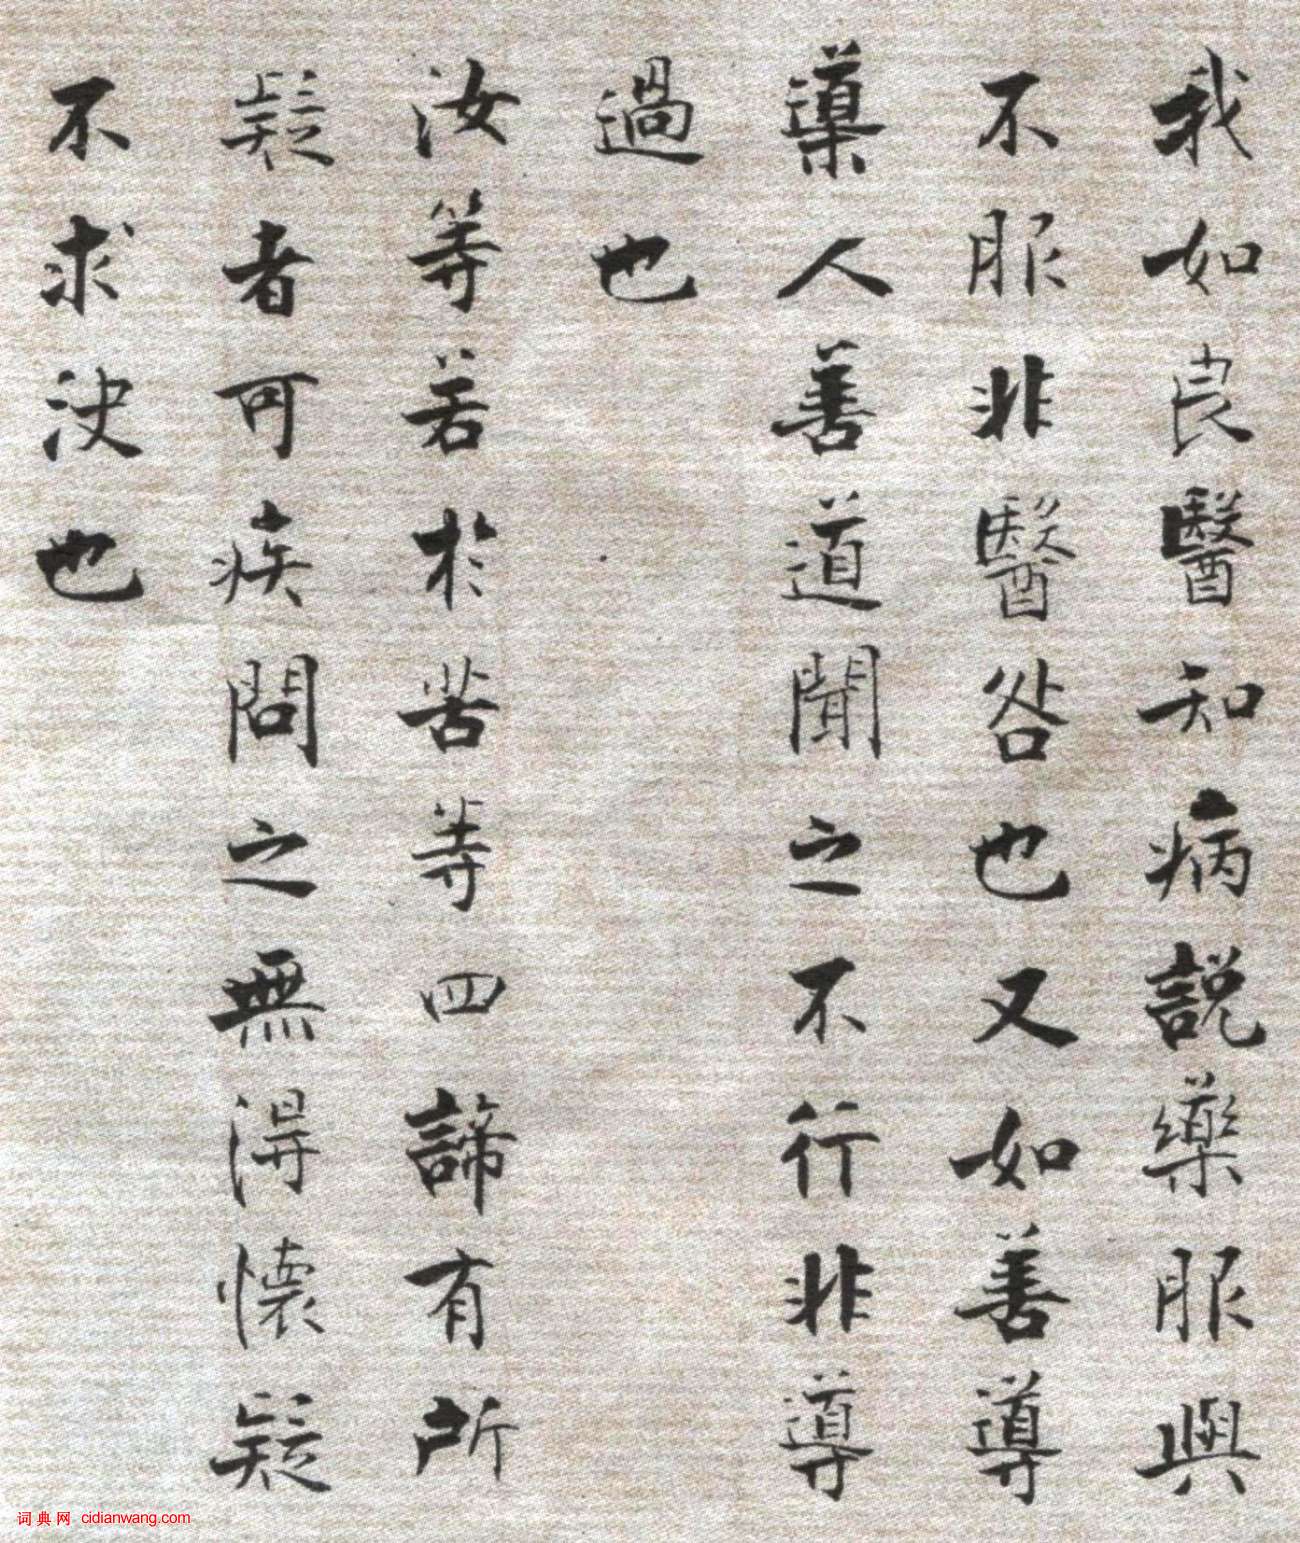 我如良醫知病說藥服與
不服非醫咎也又如善導
導人善道聞之不行非導
過也
汝等若於苦等四諦有所
疑者可疾問之無得懷疑
不求決也
词典网 cidianwang.com